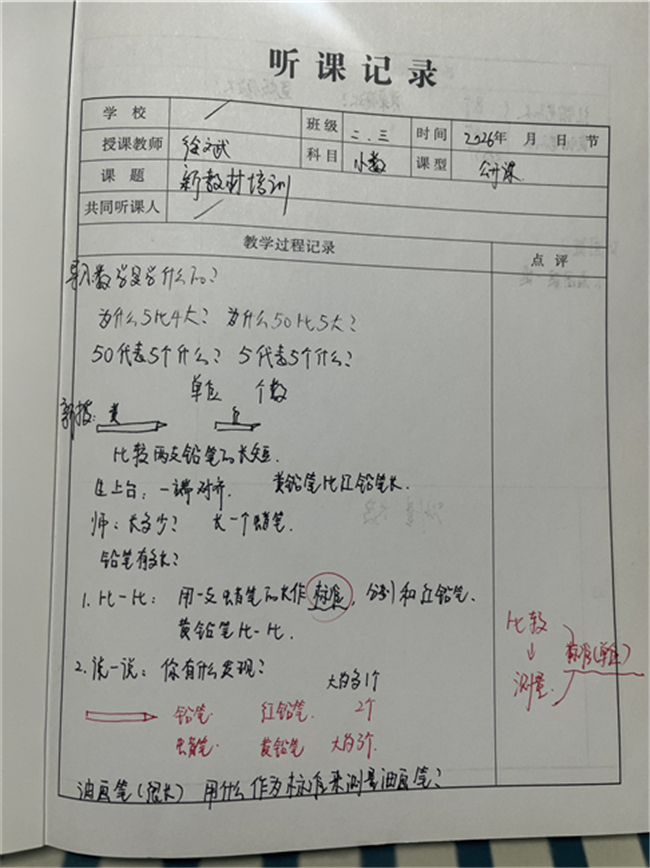 听课记录
学校 班级 二.三 时间 2026年 月 日 节
授课教师 徐文斌 科目 小数 课型 公开课
课题 新教材培训
共同听课人
教学过程记录 点评
导入:数学是学什么的?
为什么5比4大? 为什么50比5大?
50代表5个什么? 5代表5个什么?
单位 个数
新授: 黄 红
比较两支铅笔的长短.
生上台: 一端对齐. 黄铅笔比红铅笔长.
师: 长多少? 长一个蜡笔.
铅笔有多长?
1. 比一比: 用一支蜡笔的长作标准, 分别和红铅笔.
黄铅笔比一比.
比较
↓ 标准(单位)
测量
2. 说一说: 你有什么发现?
大约多1个
铅笔 红铅笔 2个
蜡笔 黄铅笔 大约3个.
油画笔(很长) 用什么作为标准来测量油画笔?